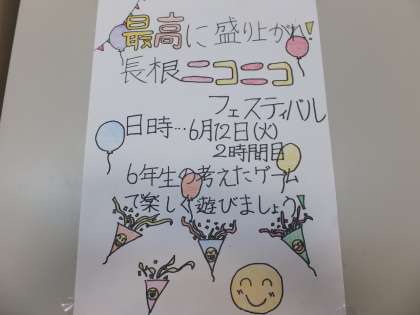 最高に盛り上がれ!
長根ニコニコ
フェスティバル
日時…6月12日(火)
2時間目
6年生の考えたゲーム
で楽しく遊びましょう!